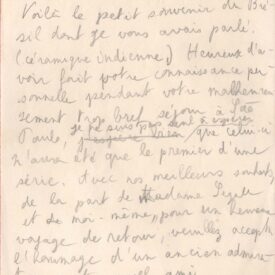 Voilà le petit souvenir du Bré-
sil dont je vous avais parlé.
(céramique indienne) Heureux d'a-
voir fait votre connaissance per-
sonnelle pendant votre malheureu-
sement trop bref séjour à São
Paulo, je ne suis pas seul à espérer
que celui-ci
n'aura été que le premier d'une
série. Avec nos meilleurs souhaits
de la part de Madame
et de moi-même, pour un heureux
voyage de retour, veuillez accepter
l'hommage d'un ancien admira-